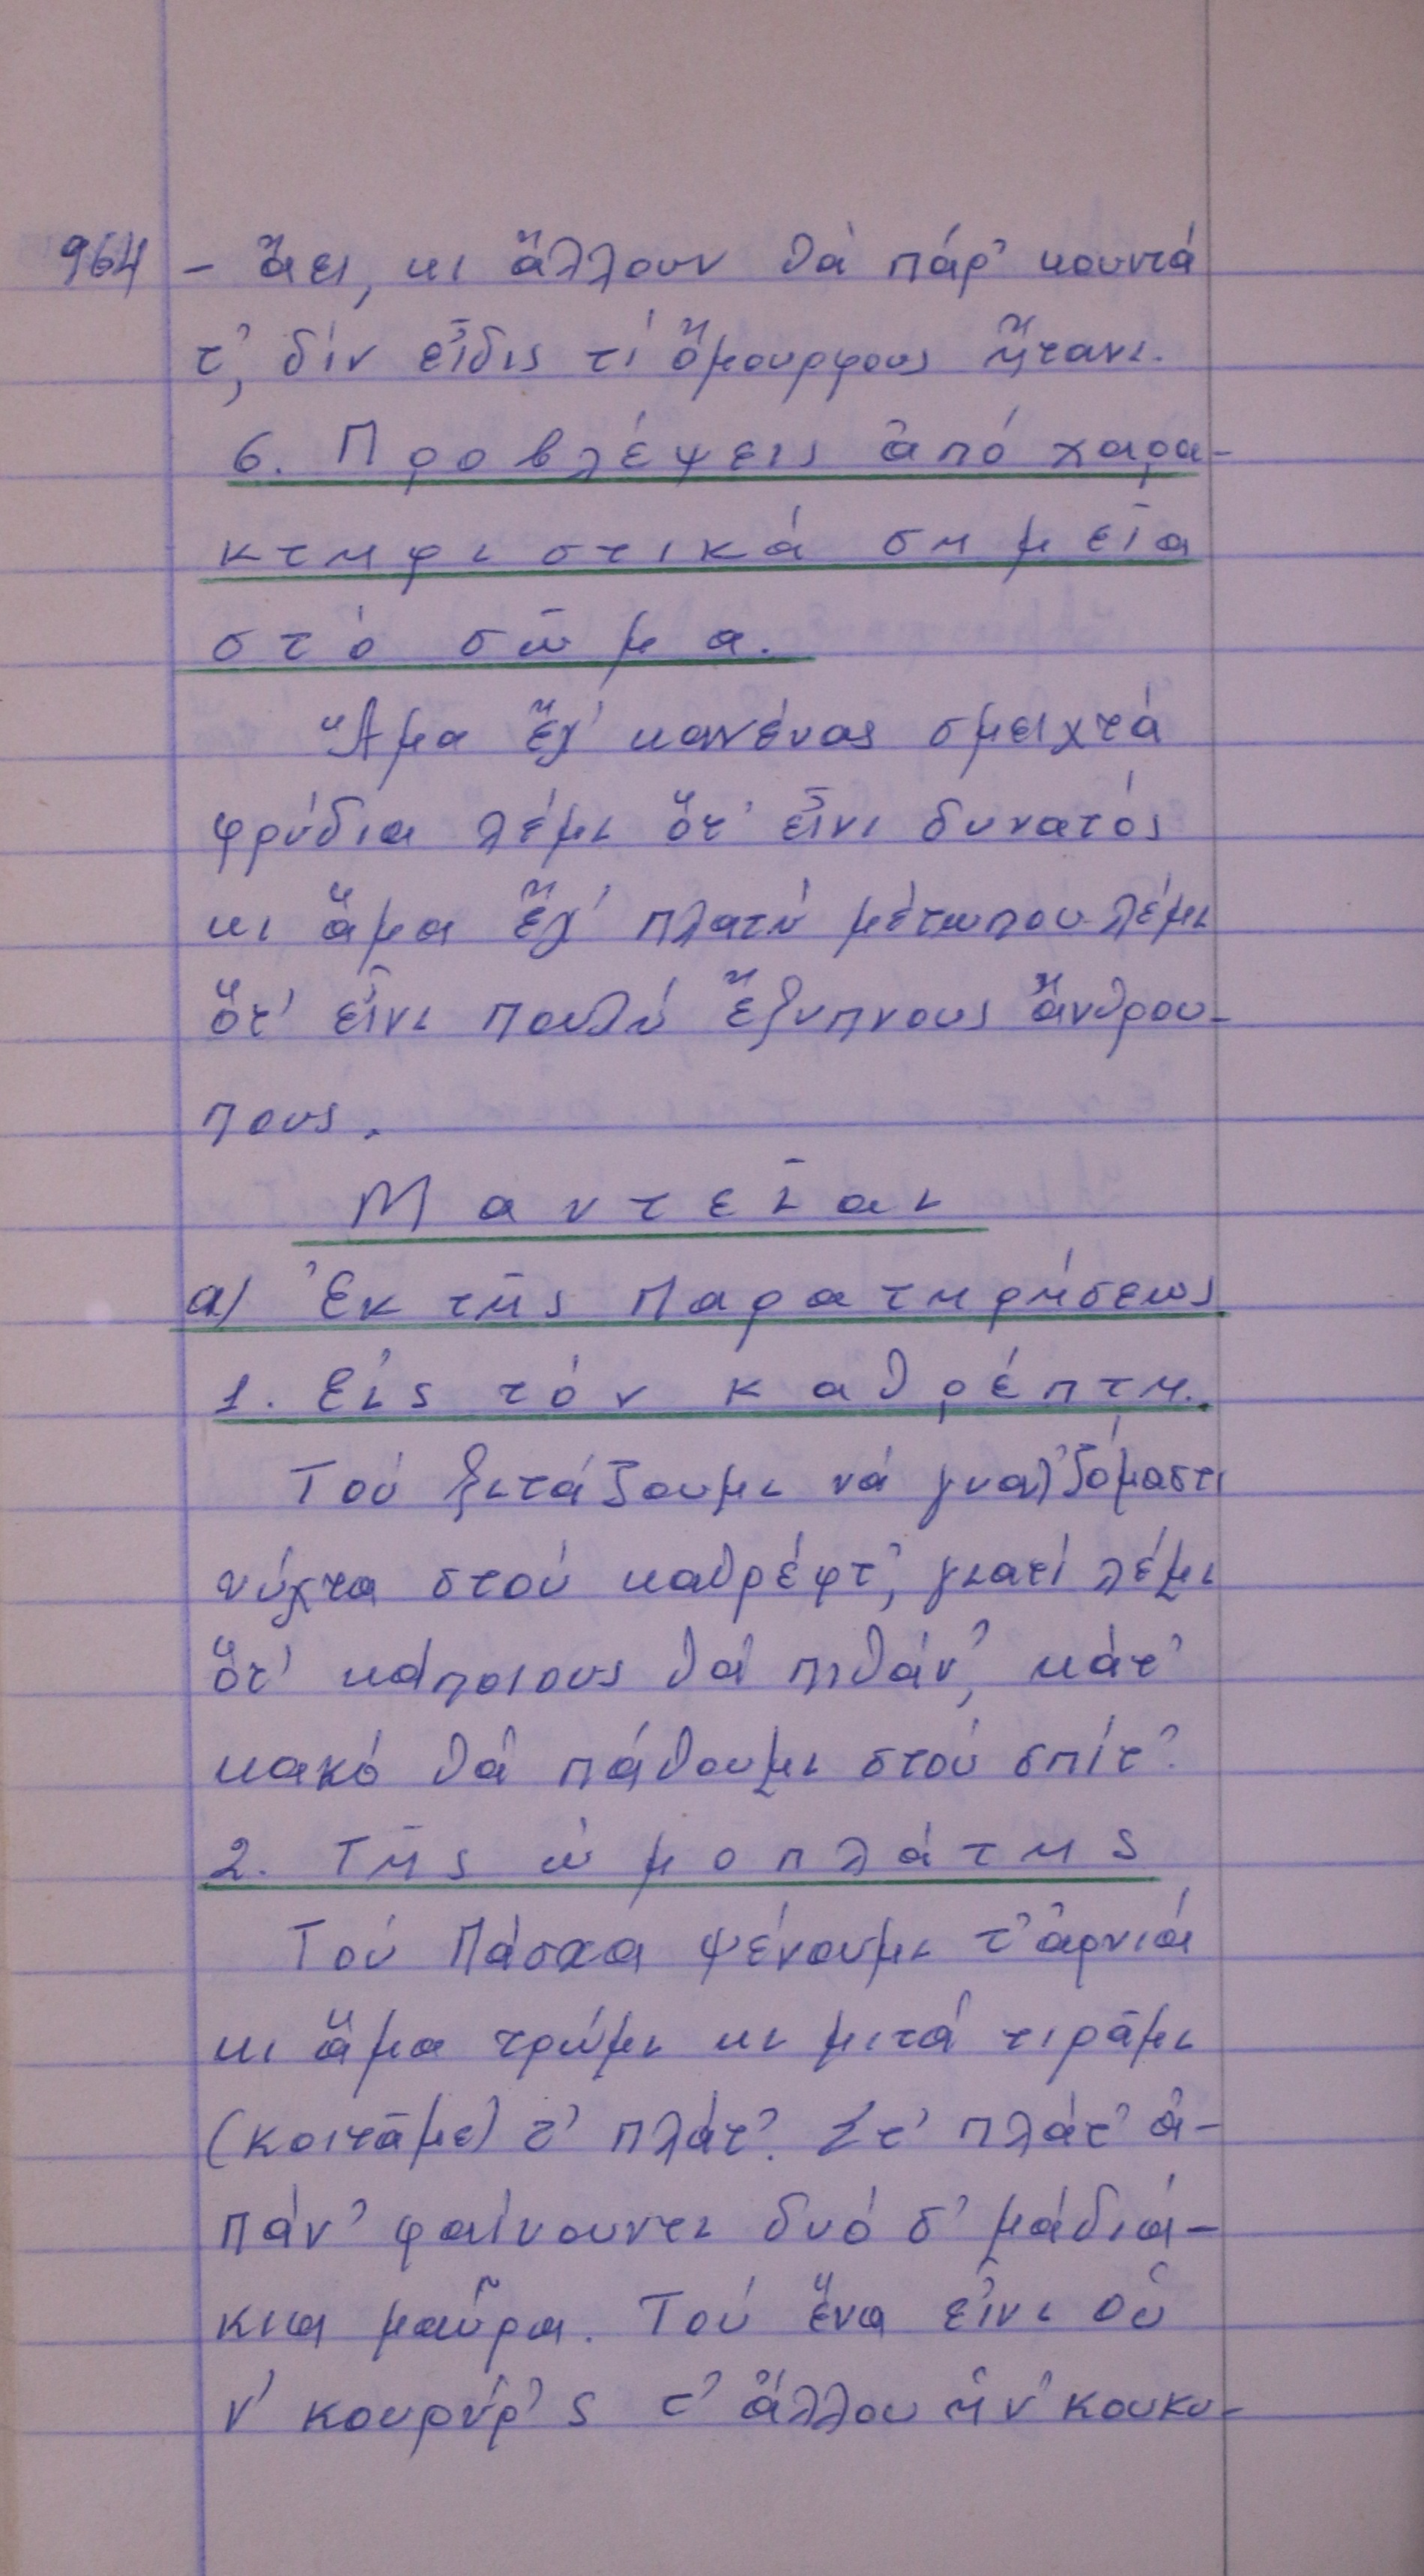 964 - Ἄει, κι ἄλλουν θά πάρ' κουντά
τ', δέν εἶδις τί ὄμουρφους ἤτανι.
6. Προβλέψεις ἀπό χαρα-
κτηριστικά σημεῖα
στό σῶμα.
Ἅμα ἔχ' κανένας σμειχτά
φρύδια λέμι ὅτ' εἶνι δυνατός
κι ἅμα ἔχ' πλατύ μέτωπου λέμι
ὅτ' εἶνι πουλύ ἔξυπνους ἄνθρου-
πους.
Μαντεῖαι
α) Ἐκ τῆς Παρατηρήσεως
1. Εἰς τόν καθρέπτη.
Τού ξιτάζουμι νά γυαλ'ζόμαστι
νύχτα στού καθρέφτ', γιατί λέμι
ὅτ' κάποιους θά πιθάν', κάτ'
κακό θά πάθουμι στού σπίτ'.
2. Τῆς ὠμοπλάτης
Τού Πάσχα ψένουμι τ' ἀρνιά
κι ἅμα τρώμι κι μιτά τιρᾶμι
(κοιτᾶμε) τ' πλάτ'. Στ' πλάτ' ἀ-
πάν' φαίνουντι δυό σ' μάδιά-
κια μαῦρα. Τού ἕνα εἶνι οὑ
ν' κουρύρ'ς τ' ἄλλου ἡ ν' κουκυ-